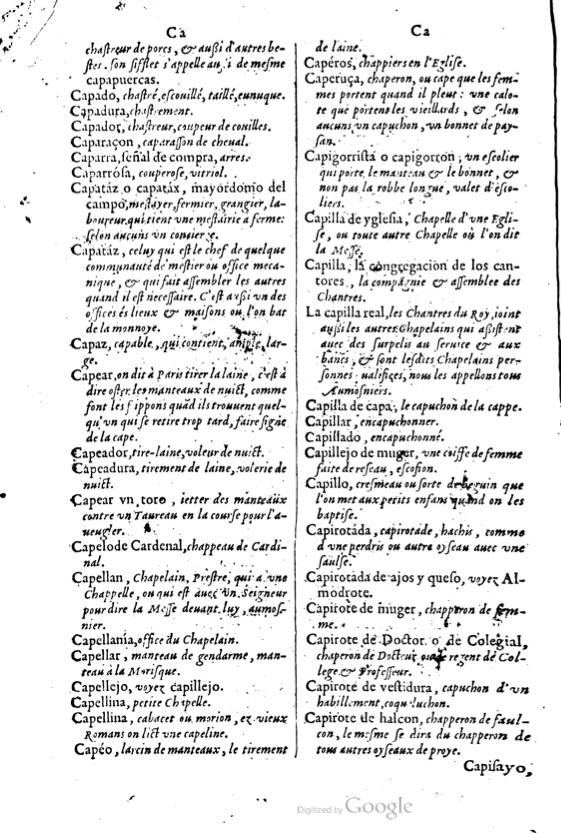 Ca
chastreur de porcs, & außi d'autres be-
stes. son sifflet s'appelle aussi de mesme
capapuercas.
Capado, chastré, escouillé, taillé, eunuque.
Capadura, chastrement.
Capador, chastreur, coupeur de couilles.
Caparaçon, caparasson de cheual.
Caparra, señal de compra, arres.
Caparrósa, couperose, vitriol.
Capatáz o capatáx, mayordomo del
campo, mestayer, fermier, grangier, la-
boureur qui tient vne mestairie à ferme:
selon aucuns vn concierge.
Capatáz, celuy qui est le chef de quelque
communauté de mestier ou office meca-
nique, & qui fait assembler les autres
quand il est necessaire. C'est aussi vn des
offices és lieux & maisons ou l'on bat
de la monnoye.
Capaz, capable, qui contient, ample, lar-
ge.
Capear, on dit à Paris tirer la laine, c'est à
dire oster les manteaux de nuict, comme
font les frippons quãd ils trouuent quel-
qu'vn qui se retire trop tard, faire signe
de la cape.
Capeador, tire-laine, voleur de nuict.
Capeadura, tirement de laine, volerie de
nuict.
Capear vn toro, ietter des manteaux
contre vn Taureau en la course pour l'a-
ueugler.
Capelo de Cardenal, chappeau de Cardi-
nal.
Capellan, Chapelain, Prestre, qui a vne
Chappelle, ou qui est auec vn Seigneur
pour dire la Messe deuant luy, aumos-
nier.
Capellanía, office du Chapelain.
Capellar, manteau de gendarme, man-
teau à la Morisque.
Capellejo, voyez capillejo.
Capellina, petite Chapelle.
Capellina, cabacet ou morion, ez vieux
Romans on lict vne capeline.
Capéo, larcin de manteaux, le tirement
Ca
de laine.
Capéros, chappiers en l'Eglise.
Caperuça, chaperon, ou cape que les fem-
mes portent quand il pleut: vne calo-
te que portent les vieillards, & selon
aucuns vn capuchon, vn bonnet de pay-
san.
Capigorrista o capigorron, vn escolier
qui porte le manteau & le bonnet, &
non pas la robbe longue, valet d'esco-
liers.
Capilla de yglesia, Chapelle d'vne Egli-
se, ou toute autre Chapelle où l'on dit
la Messe.
Capilla, la congregacion de los can-
tores, la compagnie & assemblee des
Chantres.
La capilla real, les Chantres du Roy, ioint
aussi les autres Chapelains qui aßistent
auec des surpelis au seruice & aux
bancs, & sont lesdits Chapelains per-
sonnes qualifiees, nous les appellons tous
Aumosniers.
Capilla de capa, le capuchon de la cappe.
Capillar, encapuchonner.
Capillado, encapuchonné.
Capillejo de muger, vne coiffe de femme
faite de reseau, escofion.
Capillo, cresmeau ou sorte de beguin que
l'on met aux petits enfans quand on les
baptise.
Capirotáda, capirotade, hachis, comme
d'vne perdris ou autre oyseau auec vne
saulse.
Capirotáda de ajos y queso, voyez Al-
modrote.
Capirote de muger, chapperon de fem-
me.
Capirote de Doctor o de Colegial,
chaperon de Docteur ou de regent de Col-
lege & Professeur.
Capirote de vestidura, capuchon d'vn
habillement, coqueluchon.
Capirote de halcon, chapperon de faul-
con, le mesme se dira du chapperon de
tous autres oyseaux de proye.
Capisayo,
Digitized by Google